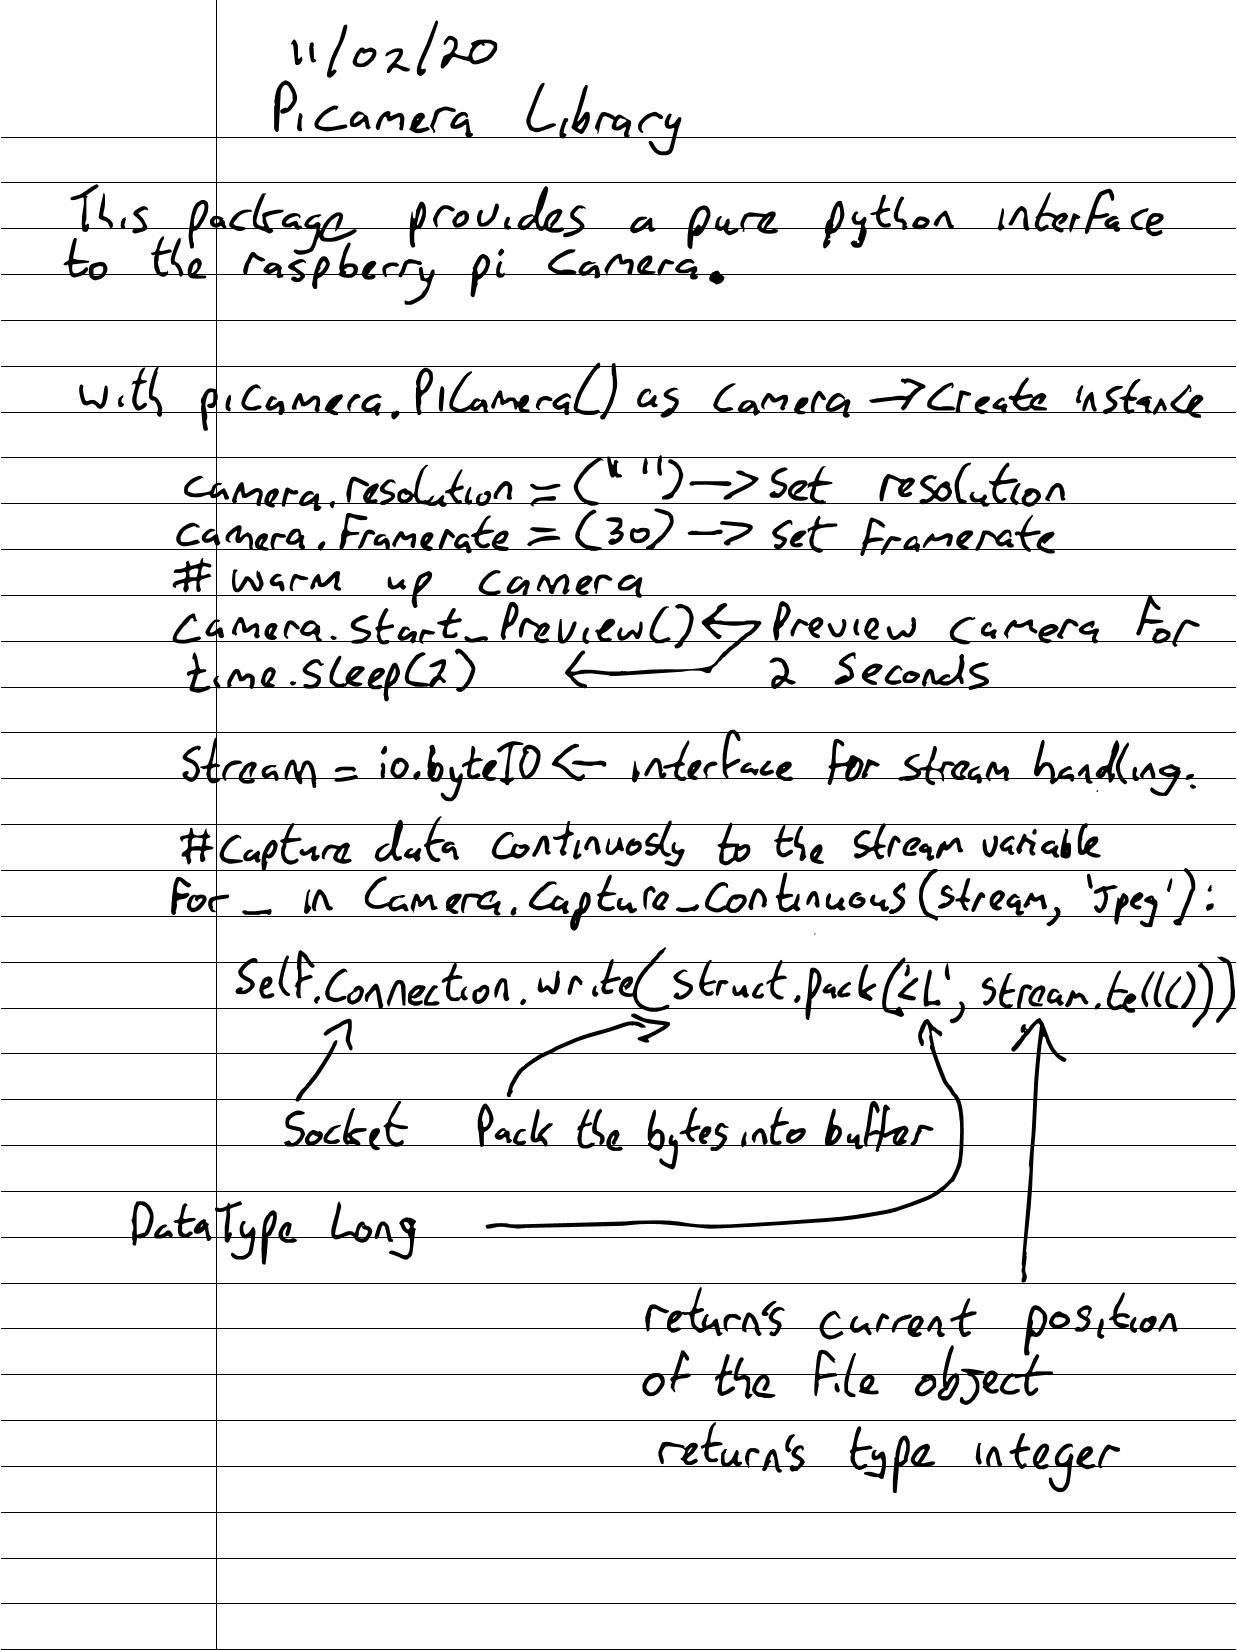 11/02/20
Picamera Library
This package provides a pure python interface
to the raspberry pi camera.
with picamera.PiCamera() as camera → Create instance
camera.resolution = ("") → Set resolution
camera.Framerate = (30) → Set Framerate
# warm up camera
camera.start_Preview() ← Preview camera For
time.sleep(2) ← 2 Seconds
Stream = io.byteIO ← interface for stream handling.
#Capture data continuosly to the stream variable
For _ in Camera.Capture_Continuous(stream, 'Jpeg'):
Self.Connection.write(struct.pack('<L', stream.tell()))
Socket Pack the bytes into buffer
DataType Long
return's current position
of the File object
return's type integer